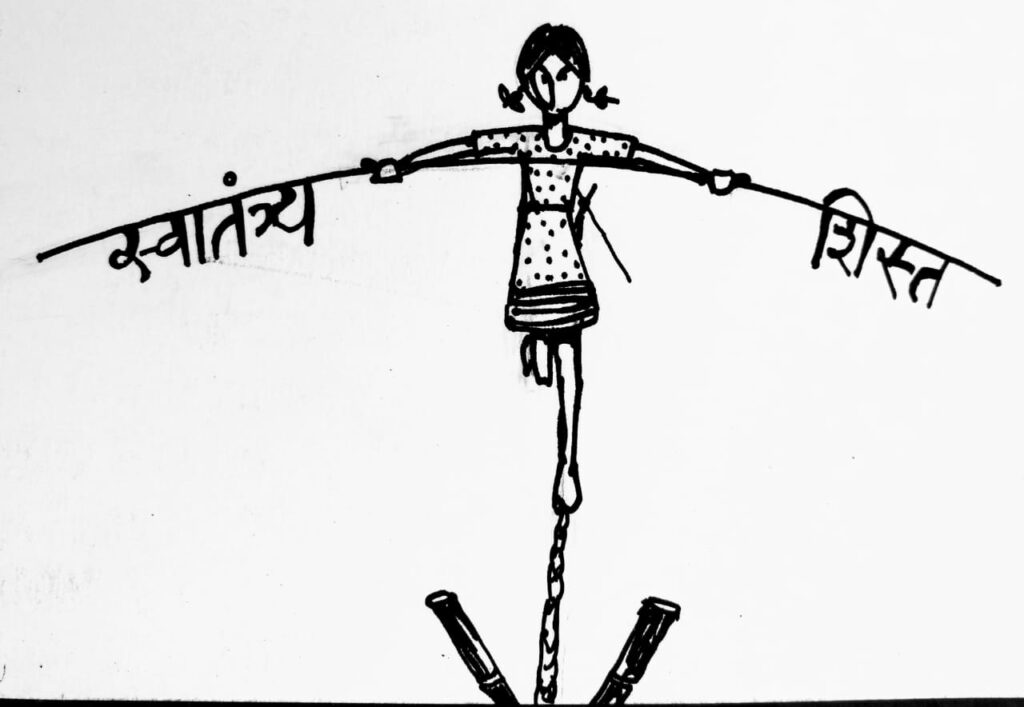 स्वातंत्र्य
शिस्त